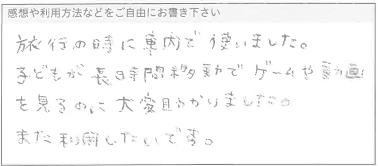 感想や利用方法などをご自由にお書き下さい
旅行の時に車内で使いました。
子どもが長時間移動でゲームや動画
を見るのに大変助かりました。
また利用したいです。